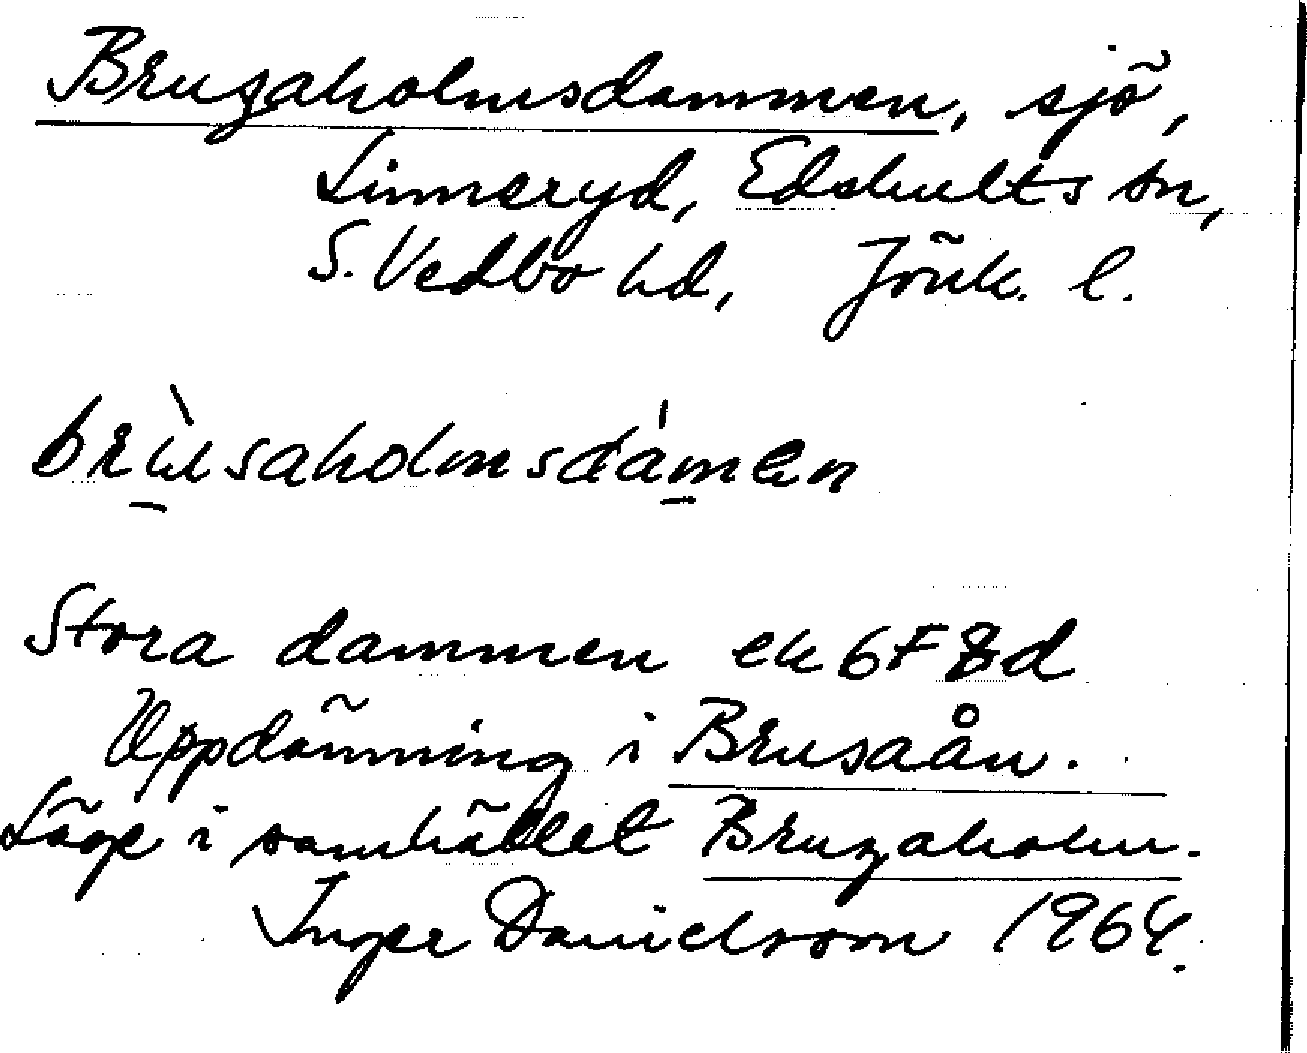 Bruzaholmsdammen, sjö,
Linneryd, Edshults sn,
S. Vedbo hd, Jönk. l.
brùsaholmsdámen
Stora dammen ek 6F8d
Uppdämning i Brusaån.
Läge i samhället Bruzaholm.
Inger Danielsson 1964.